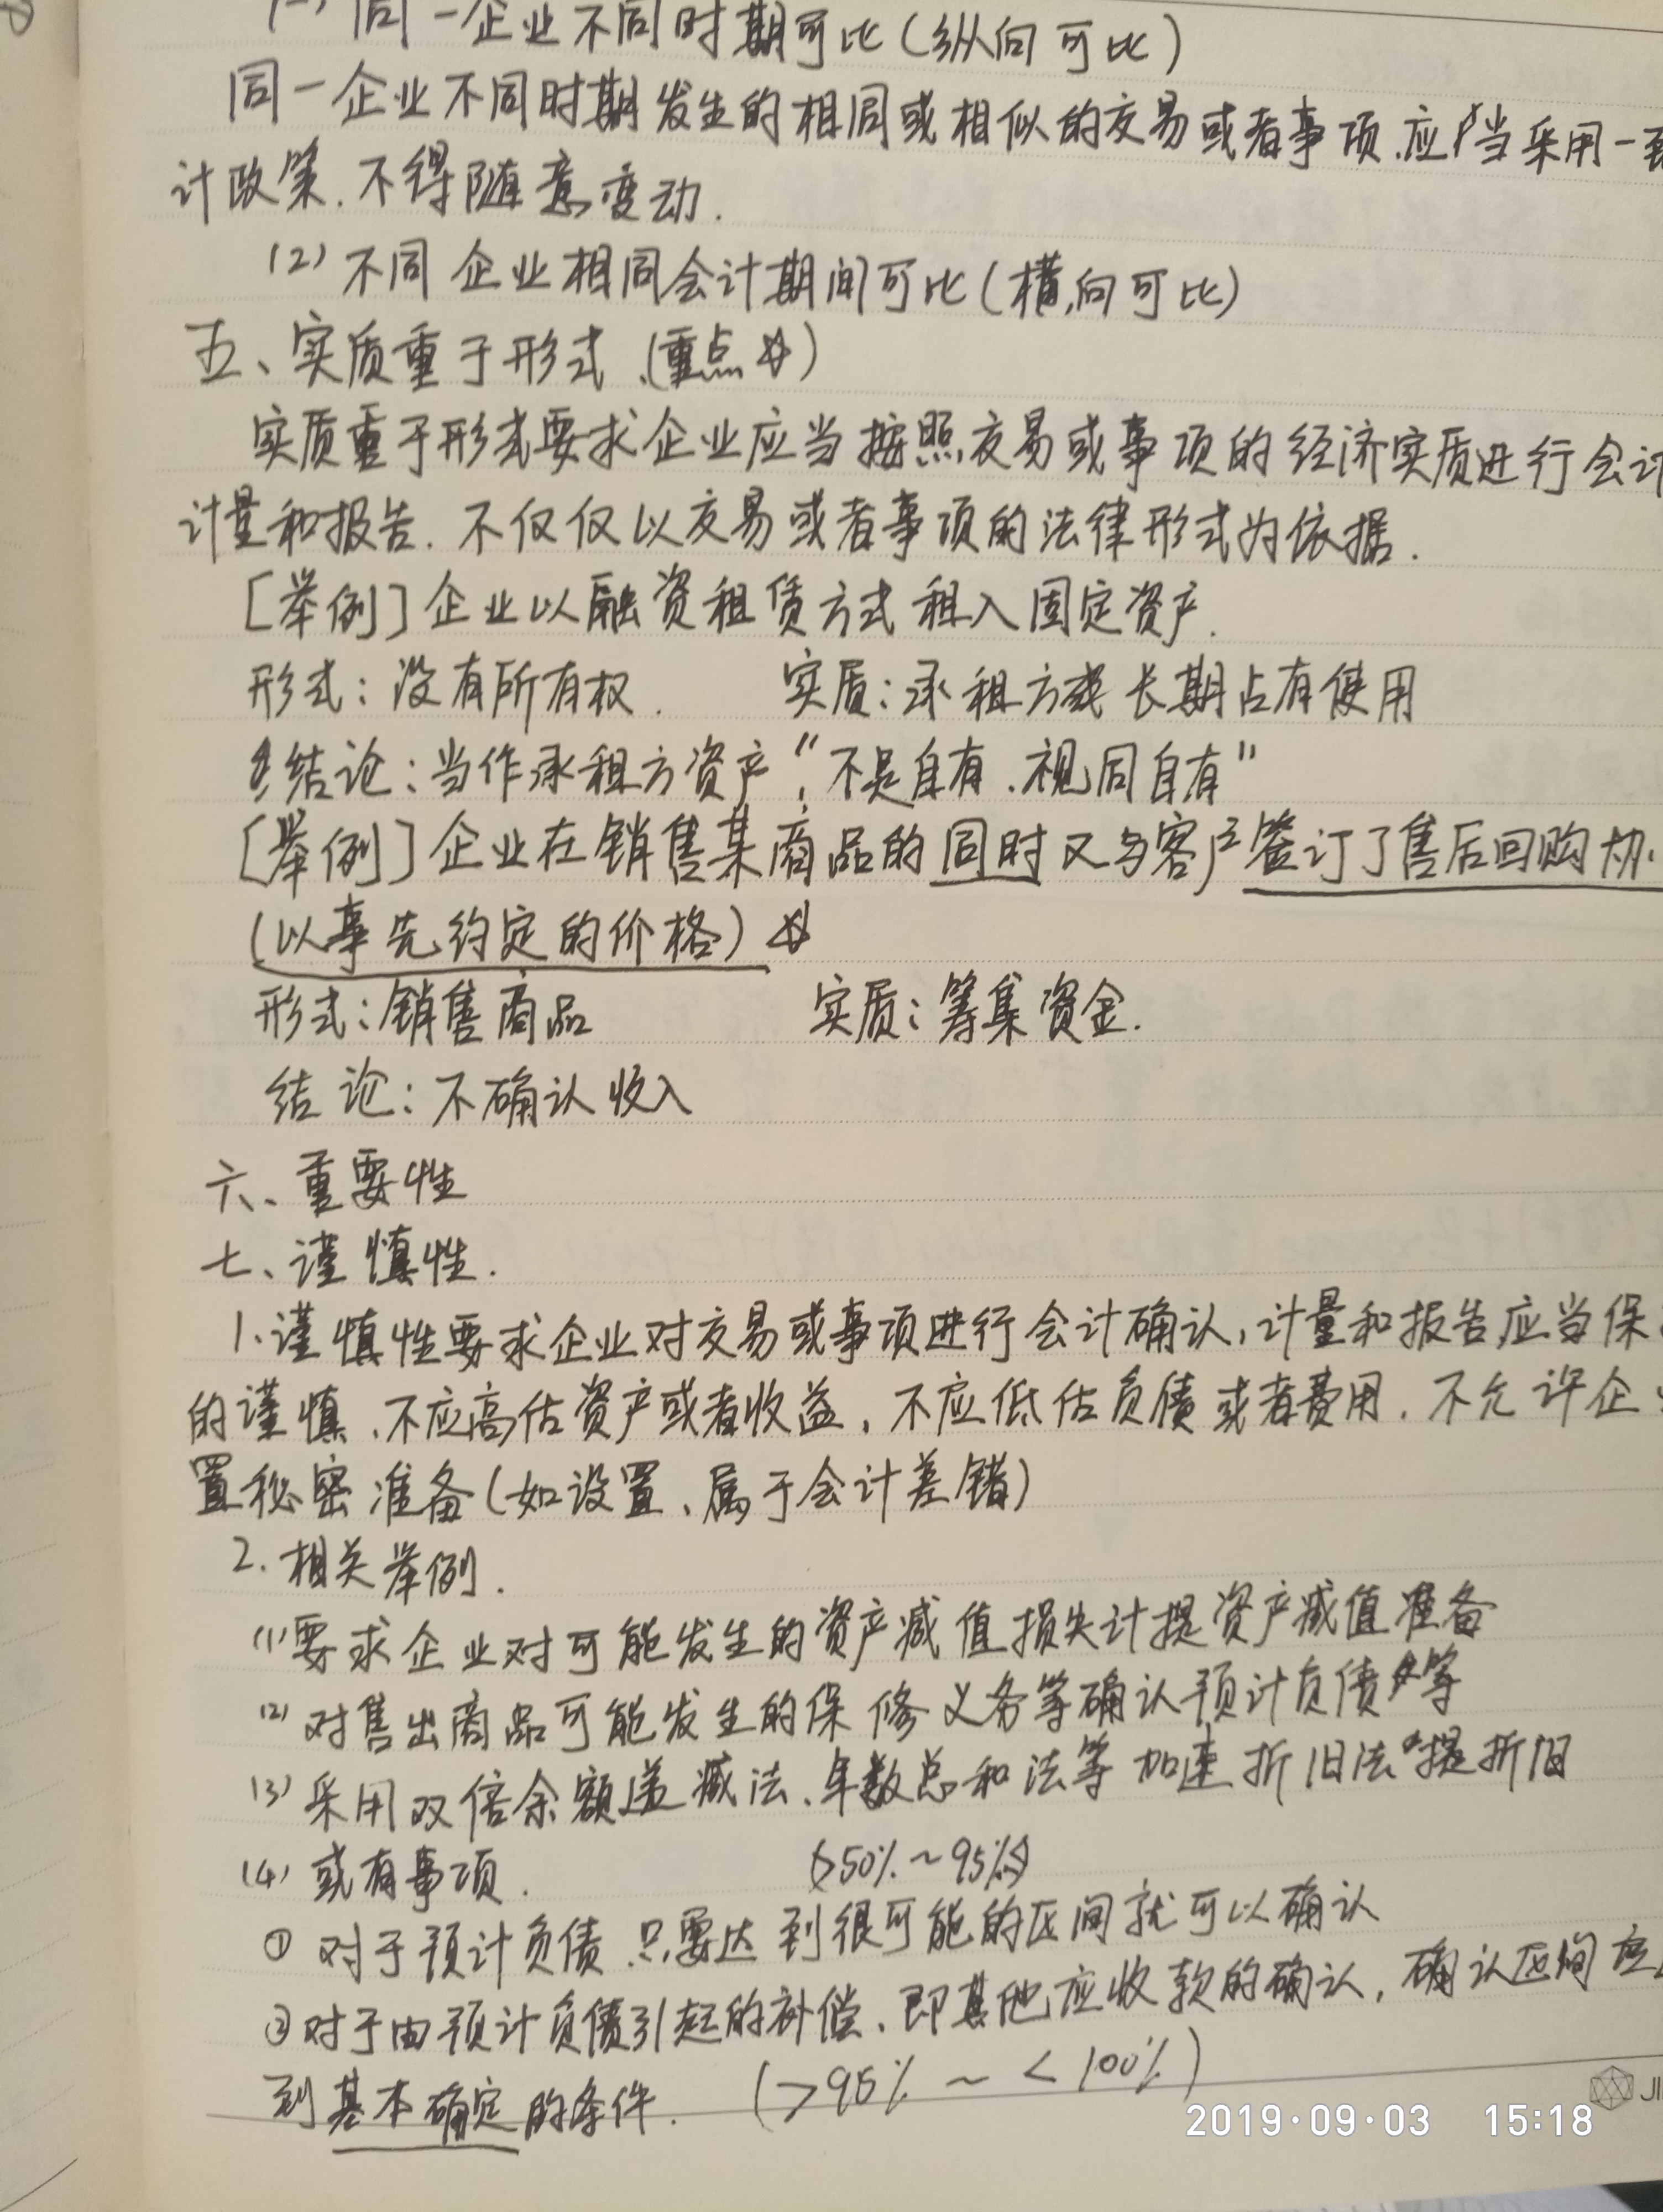 同一企业不同时期可比(纵向可比)
同一企业不同时期发生的相同或相似的交易或者事项、应当采用一致
计政策、不得随意变动.
(2) 不同企业相同会计期间可比(横向可比)
五、实质重于形式(重点☆)
实质重于形式要求企业应当按照交易或事项的经济实质进行会计
计量和报告、不仅仅以交易或者事项的法律形式为依据.
[举例]企业以融资租赁方式租入固定资产.
形式:没有所有权. 实质:承租方或长期占有使用
结论:当作承租方资产,"不是自有、视同自有"
[举例]企业在销售某商品的同时又与客户签订了售后回购协
(以事先约定的价格)☆
形式:销售商品 实质:筹集资金.
结论:不确认收入
六、重要性
七、谨慎性.
1、谨慎性要求企业对交易或事项进行会计确认、计量和报告应当保
的谨慎、不应高估资产或者收益、不应低估负债或者费用、不允许企业
置秘密准备(如设置、属于会计差错)
2.相关举例.
(1)要求企业对可能发生的资产减值损失计提资产减值准备
(2)对售出商品可能发生的保修义务等确认预计负债等
(3)采用双倍余额递减法、年数总和法等加速折旧法提折旧
(4)或有事项. (>50%~95%)
①对于预计负债只要达到很可能的区间就可以确认
②对于由预计负债引起的补偿、即其他应收款的确认,确认区间应
到基本确定的条件. (>95%~<100%)
2019·09·03 15:18
JI